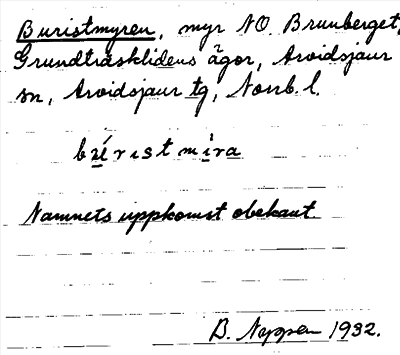 Buristmyren, myr NO Brunberget,
Grundträsklidens ägor, Arvidsjaur
sn, Arvidsjaur tg, Norrb. l.
Namnets uppkomst obekant
B. 1932.